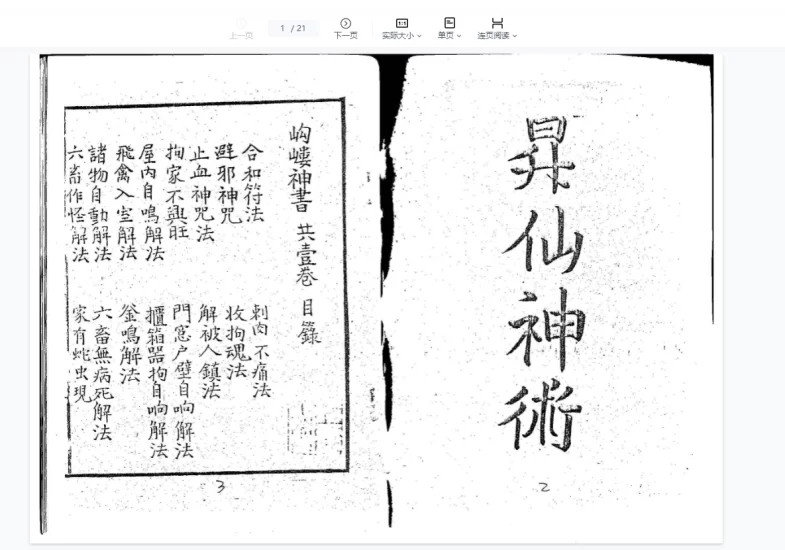 上一页
1 / 21
下一页
实际大小
单页
连页阅读
昇仙神術
2
岣嶁神書 共壹卷 目錄
合和符法 刺肉不痛法
避邪神咒 收拘魂法
止血神咒法 解被人鎮法
拘家不興旺 門窓户壁自响解法
屋内自鳴解法 櫃箱器拘自响解法
飛禽入室解法 釜鳴解法
諸物自動解法 六畜無病死解法
六畜作怪解法 家有蛇虫現
3